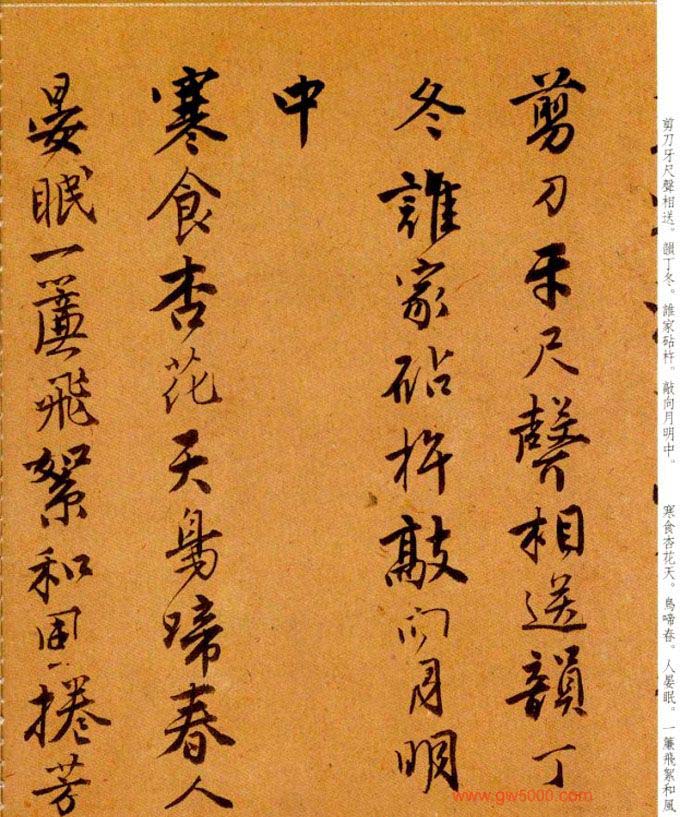 剪刀牙尺聲相送。韻丁冬。誰家砧杵。敲向月明中。
寒食杏花天。鳥啼春。人晏眠。一簾飛絮和風
剪刀牙尺聲相送韻丁
冬誰家砧杵敲向月明
中
寒食杏花天鳥啼春人
晏眠一簾飛絮和風捲芳
www.gw5000.com